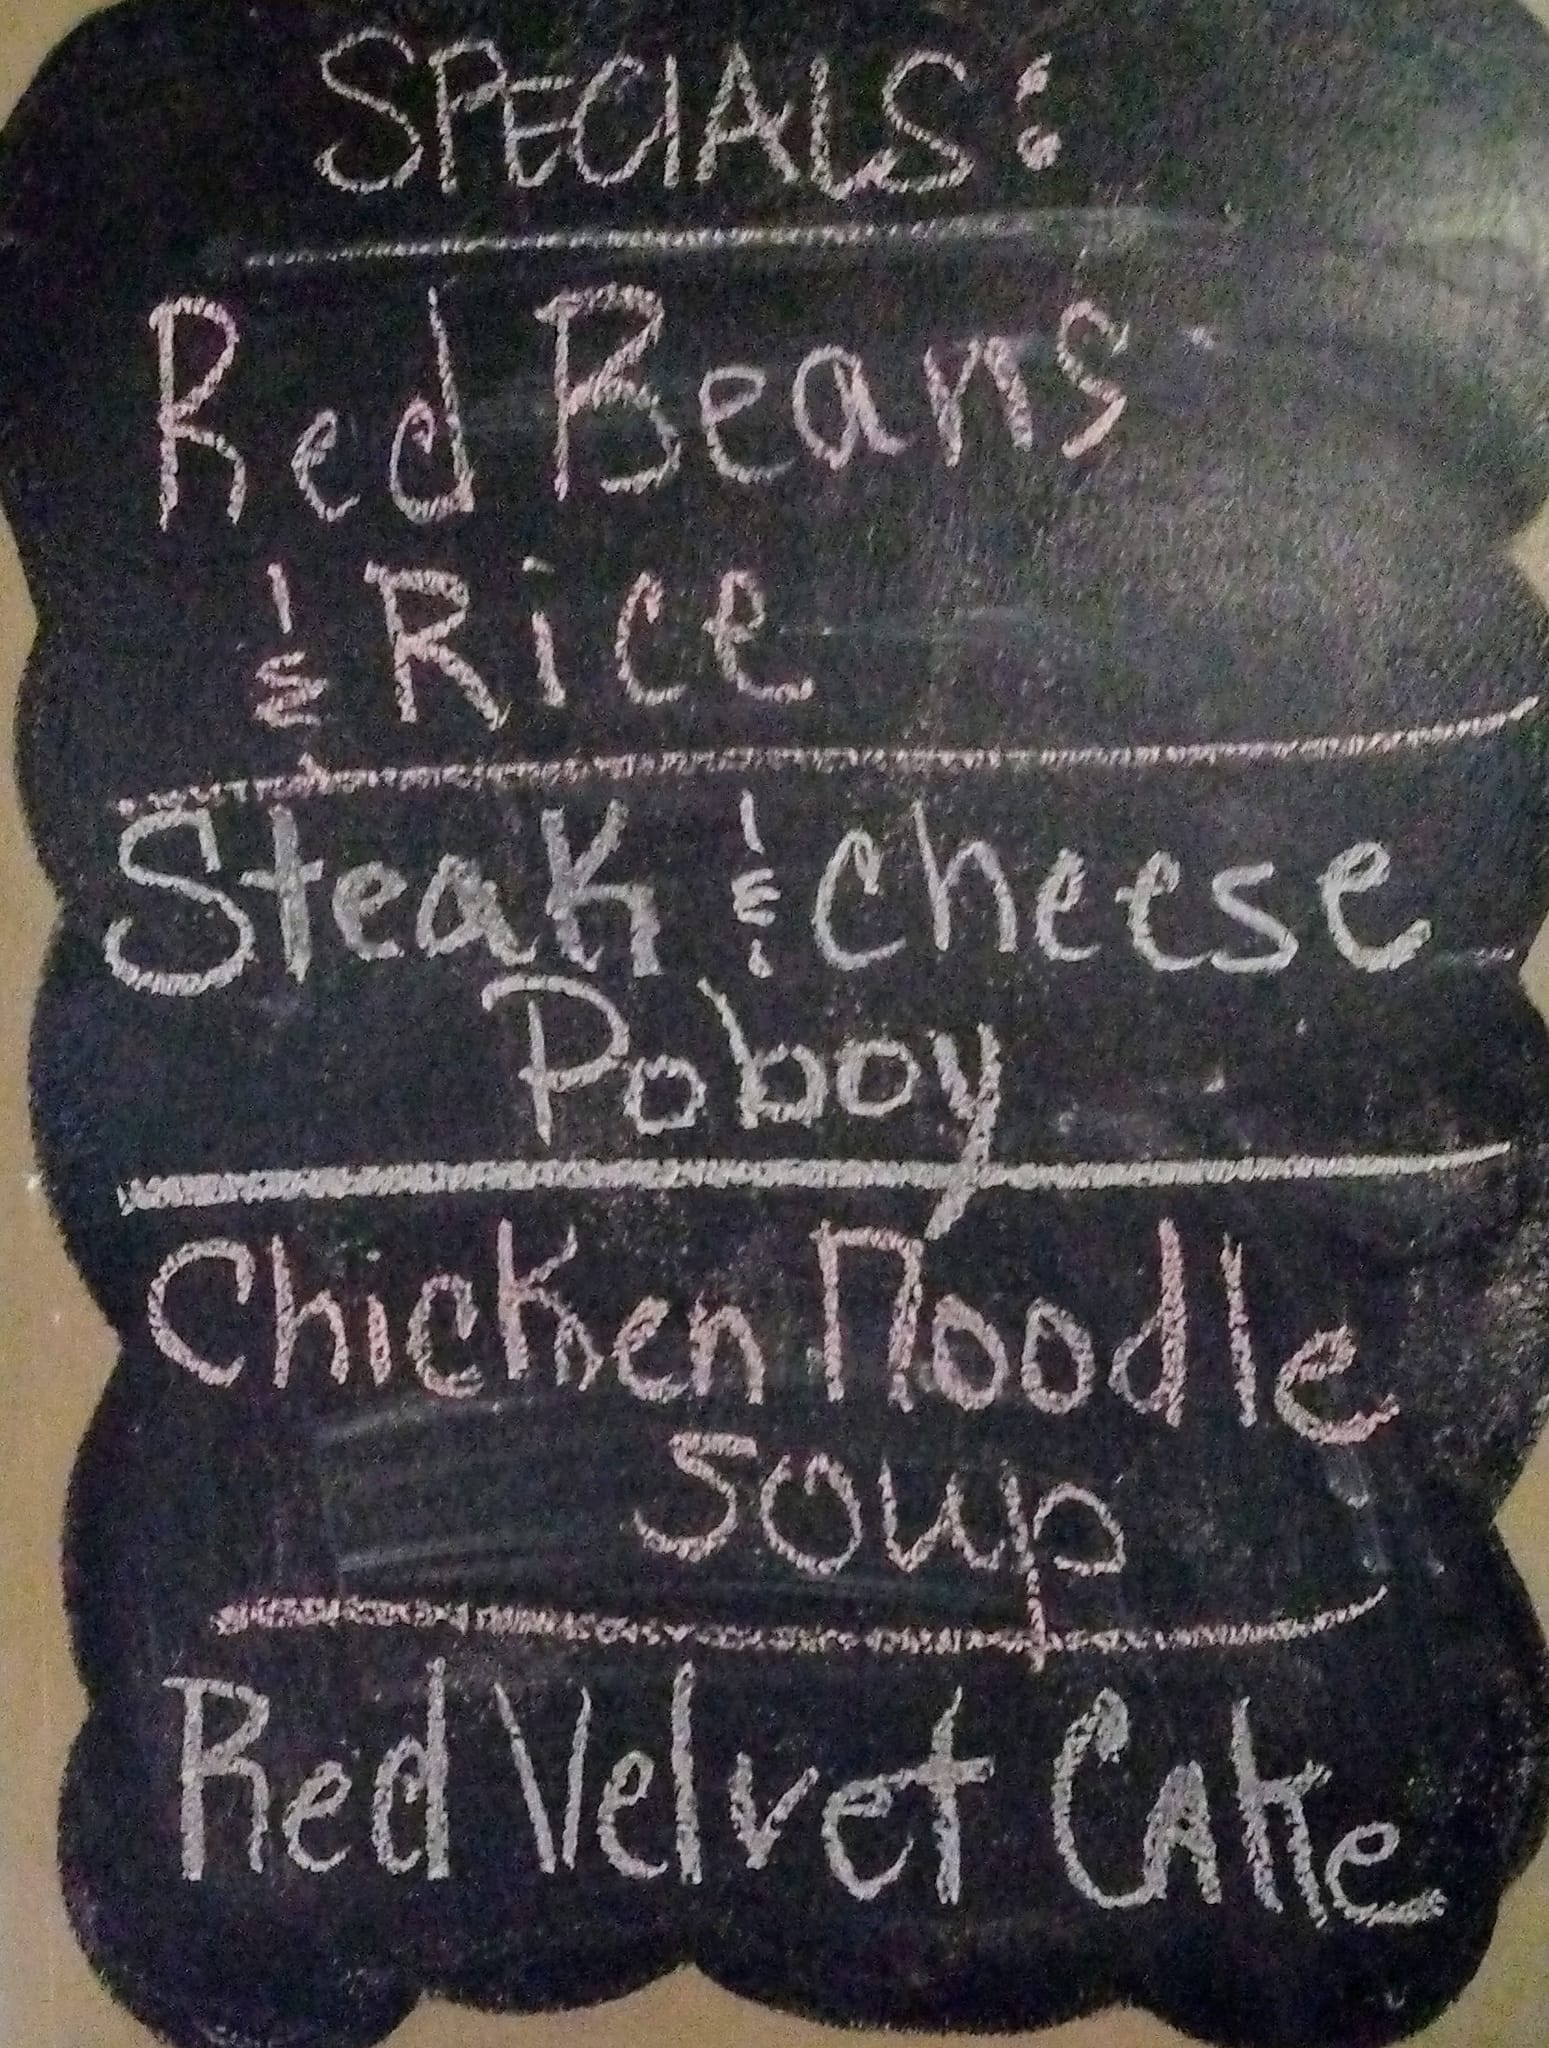 SPECIALS:
Red Beans
& Rice
Steak & cheese
Poboy
Chicken noodle
soup
Red Velvet Cake